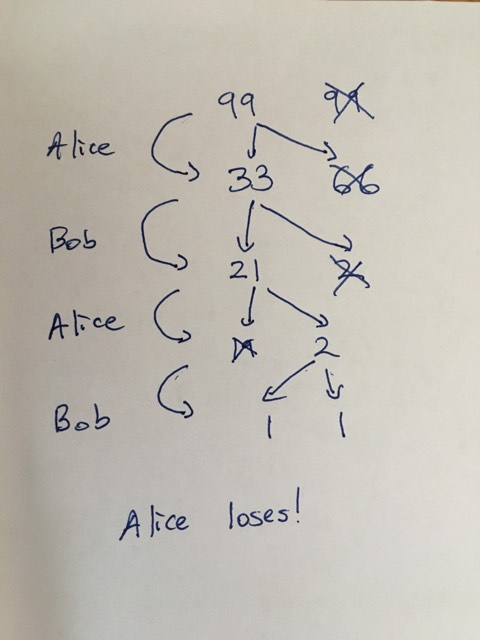 99 99
Alice
33 66
Bob
21
Alice
2
Bob
1 1
Alice loses!